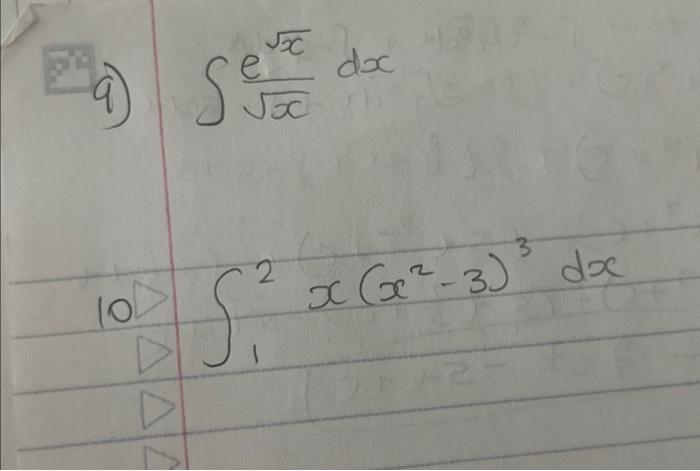 9) ∫ e^√x / √x dx
10 ∫₁² x(x² - 3)³ dx